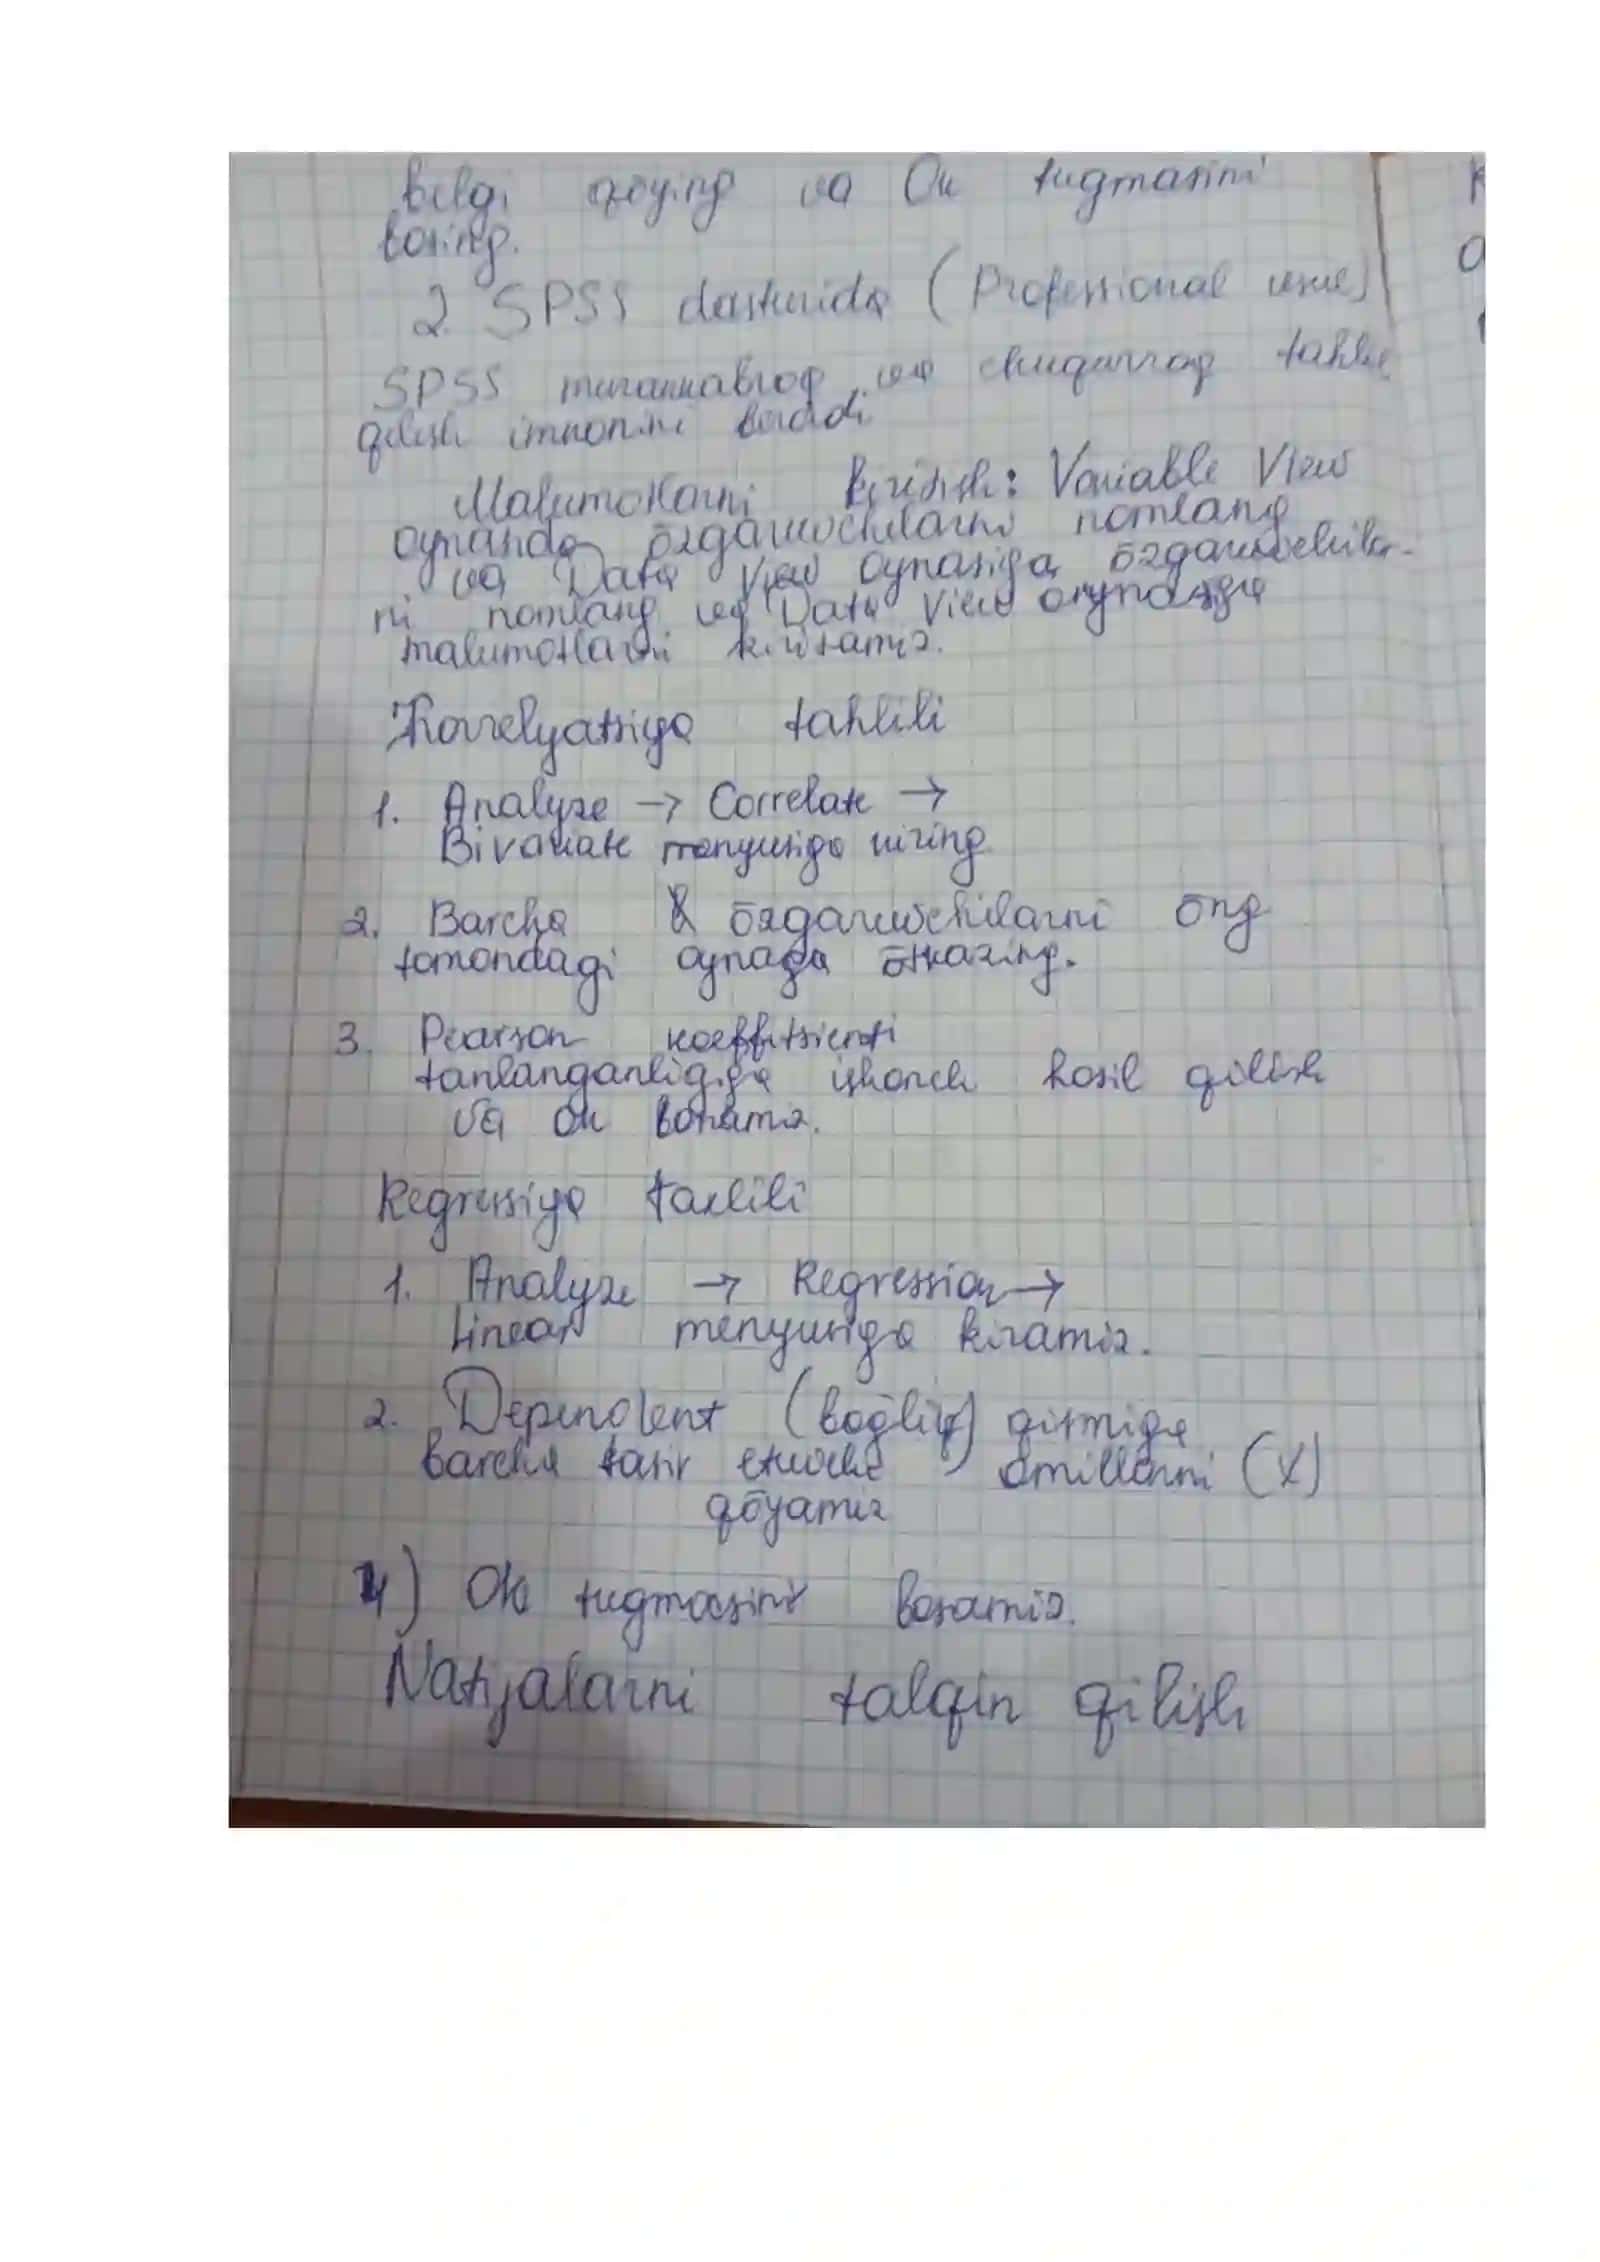 belgi qōying va Ok tugmasini
bosing.
2. SPSS dasturida (Professional usul)
SPSS murakkabroq va chuqurroq tahlil
qilish imkonini beradi
Malumotlarni kiritish: Variable View
oynasida ōzgaruvchilarni nomlang
va Data View oynasiga ōzgaruvchilar-
ni nomlang va Data View oynasiga
malumotlarni kiritamiz.
Korrelyatsiya tahlili
1. Analyze → Correlate →
Bivariate menyusiga kiring
2. Barcha ōzgaruvchilarni ōng
tomondagi oynaga ōtkazing.
3. Pearson koeffitsienti
tanlanganligiga ishonch hosil qilish
va ok bosamiz.
Regressiya taxlili
1. Analyze → Regression →
Linear menyusiga kiramiz.
2. Dependent (boğliq) qismiga
barcha tasir etuvchi omillarni (X)
qōyamiz
4) Ok tugmasini bosamiz.
Natijalarni talqin qilish